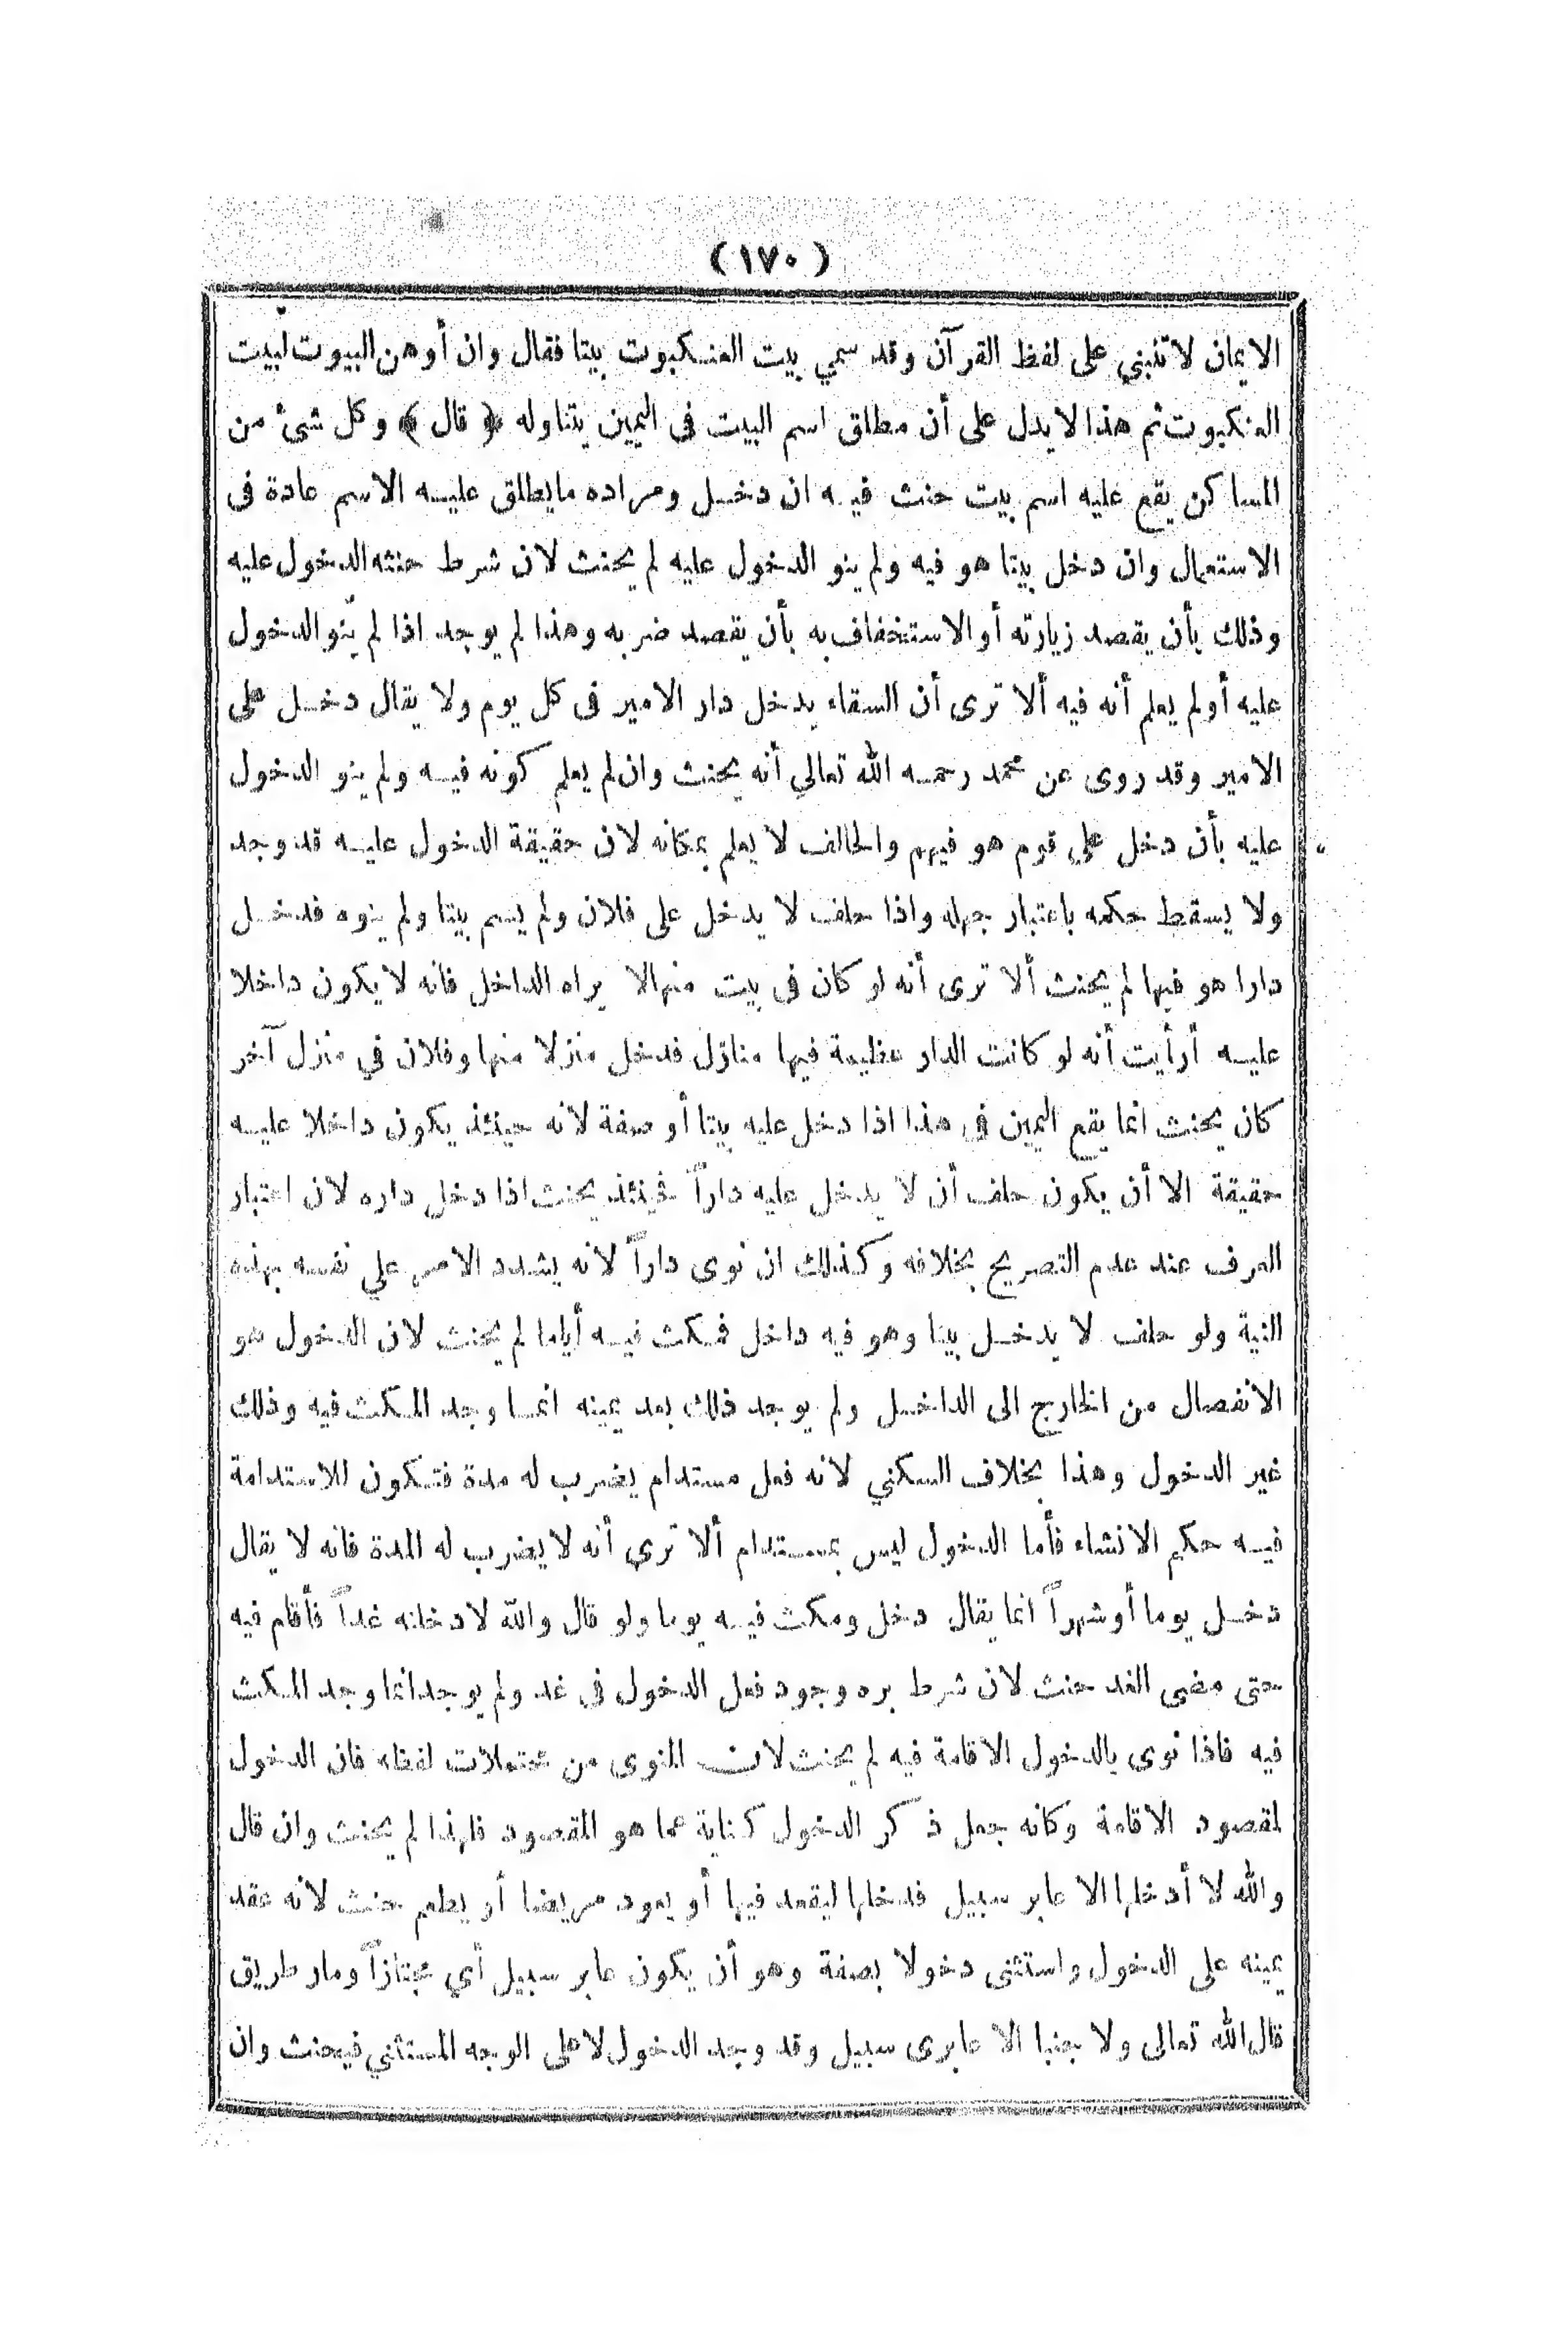 (١٧٠)
الايمان لا تنبني على لفظ القرآن وقد سمي بيت العنكبوت بيتا فقال وان أوهن البيوت لبيت
العنكبوت ثم هذا لا يدل على أن مطلق اسم البيت فى اليمين يتناوله ﴿ قال ﴾ وكل شئ من
المساكن يقع عليه اسم بيت حنث فيه ان دخل ومراده ما يطلق عليه الاسم عادة فى
الاستعمال وان دخل بيتا هو فيه ولم ينو الدخول عليه لم يحنث لان شرط حنثه الدخول عليه
وذلك بأن يقصد زيارته أو الاستخفاف به بأن يقصد ضربه وهذا لم يوجد اذا لم ينو الدخول
عليه أو لم يعلم أنه فيه ألا ترى أن السقاء يدخل دار الامير فى كل يوم ولا يقال دخل على
الامير وقد روى عن محمد رحمه الله تعالي أنه يحنث وان لم يعلم كونه فيه ولم ينو الدخول
عليه بأن دخل على قوم هو فيهم والحالف لا يعلم بمكانه لان حقيقة الدخول عليه قد وجد
ولا يسقط حكمه باعتبار جهله واذا حلف لا يدخل على فلان ولم يسم بيتا ولم ينوه فدخل
دارا هو فيها لم يحنث ألا ترى أنه لو كان فى بيت منها لا يراه الداخل فانه لا يكون داخلا
عليه أرأيت أنه لو كانت الدار عظيمة فيها منازل فدخل منزلا منها وفلان في منزل آخر
كان يحنث انما يقع اليمين فى هذا اذا دخل عليه بيتا أو صفة لانه حينئذ يكون داخلا عليه
حقيقة الا أن يكون حلف أن لا يدخل عليه داراً فحينئذ يحنث اذا دخل داره لان اعتبار
العرف عند عدم التصريح بخلافه وكذلك ان نوى داراً لانه يشدد الامر علي نفسه بهذه
النية ولو حلف لا يدخل بيتا وهو فيه داخل فمكث فيه أياما لم يحنث لان الدخول هو
الانفصال من الخارج الى الداخل ولم يوجد ذلك بعد يمينه انما وجد المكث فيه وذلك
غير الدخول وهذا بخلاف السكني لانه فعل مستدام يضرب له مدة فتكون للاستدامة
فيه حكم الانشاء فأما الدخول ليس بمستدام ألا ترى أنه لا يضرب له المدة فانه لا يقال
دخل يوما أو شهراً انما يقال دخل ومكث فيه يوما ولو قال والله لادخلنه غداً فأقام فيه
حتى مضى الغد حنث لان شرط بره وجود فعل الدخول فى غد ولم يوجد انما وجد المكث
فيه فاذا نوى بالدخول الاقامة فيه لم يحنث لان المنوى من محتملات لفظه فان الدخول
لمقصود الاقامة وكانه جعل ذكر الدخول كناية عما هو المقصود فلهذا لم يحنث وان قال
والله لا أدخلها الا عابر سبيل فدخلها ليقعد فيها أو يعود مريضا أو يطعم حنث لانه عقد
يمينه على الدخول واستثنى دخولا بصفة وهو أن يكون عابر سبيل أي مجتازاً ومار طريق
قال الله تعالى ولا جنبا الا عابرى سبيل وقد وجد الدخول لا على الوجه المستثني فيحنث وان